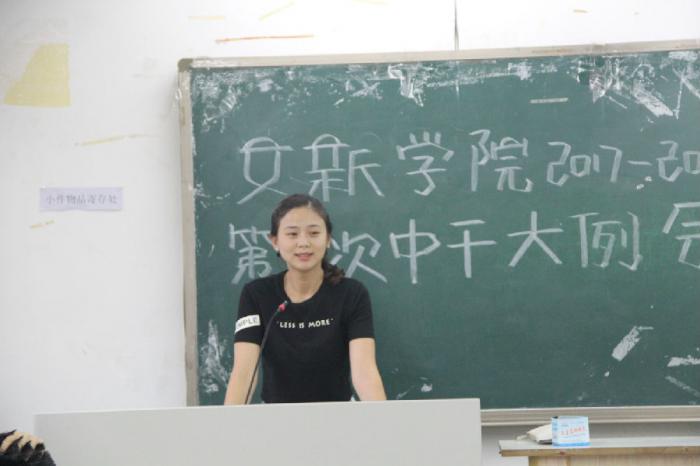 文新学院2017-20
第 次中干大例会
小件物品寄存处
MPLE
"LESS IS MORE"